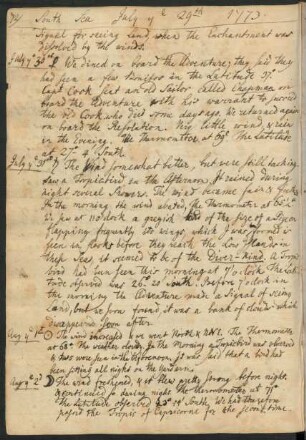 74 South Sea July ye 29th 1773.
Signal for seeing land, when the Enchantment was
dissolved by the winds.
July ye 30th We dined on board the Adventure; they said they
had seen a few in the Latitude 37°
Capt. Cook sent an old Sailor called Chapman on
board the Adventure with his warrant to succeed
the old Cook, who died some days ago. We returned again
on board the Resolution. Very little wind, & less
in the Evening. The Thermometer at 69°. The Latitude
South.
July ye 31st The Wind somewhat better, but were still tacking.
Saw a Tropicbird in the Afternoon. It rained during
night several Showers. The wind became fair & fresh.
In the morning the wind abated, the Thermometer at 65
at o'clock a greyish bird of the size of a Pigeon
flapping frequently its wings, which I was formerly
seen in flocks before they reach the low Islands in
these Seas, it seemed to be of the Diver-kind. A Tropic
bird had been seen this morning at 7 o'clock. The Lati-
tude observed was 26° 20' South. Before 7 o'clock in
the morning the Adventure made a Signal of seeing
Land, but it soon found, it was a bank of clouds which
disappeared soon after.
Aug. ye 1st The wind increased & we went North & NbW. The Thermometer
at 68° the weather cloudy. In the morning a Tropicbird was observed
& two were seen in the afternoon, it was said that a bird had
been fishing all night in the harbour.
Aug. ye 2d The wind freshened, & it blew pretty strong before night.
& continued so during night the thermometer at 71°
The Latitude observed 23° 14' South. We had therefore
passed the Tropic of Capricorne for the second time.